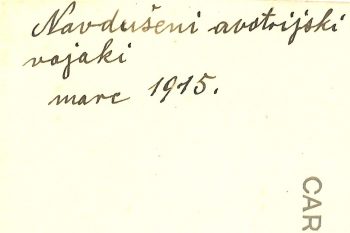 Navdušeni avstrijski
vojaki
marc 1915.
CAR